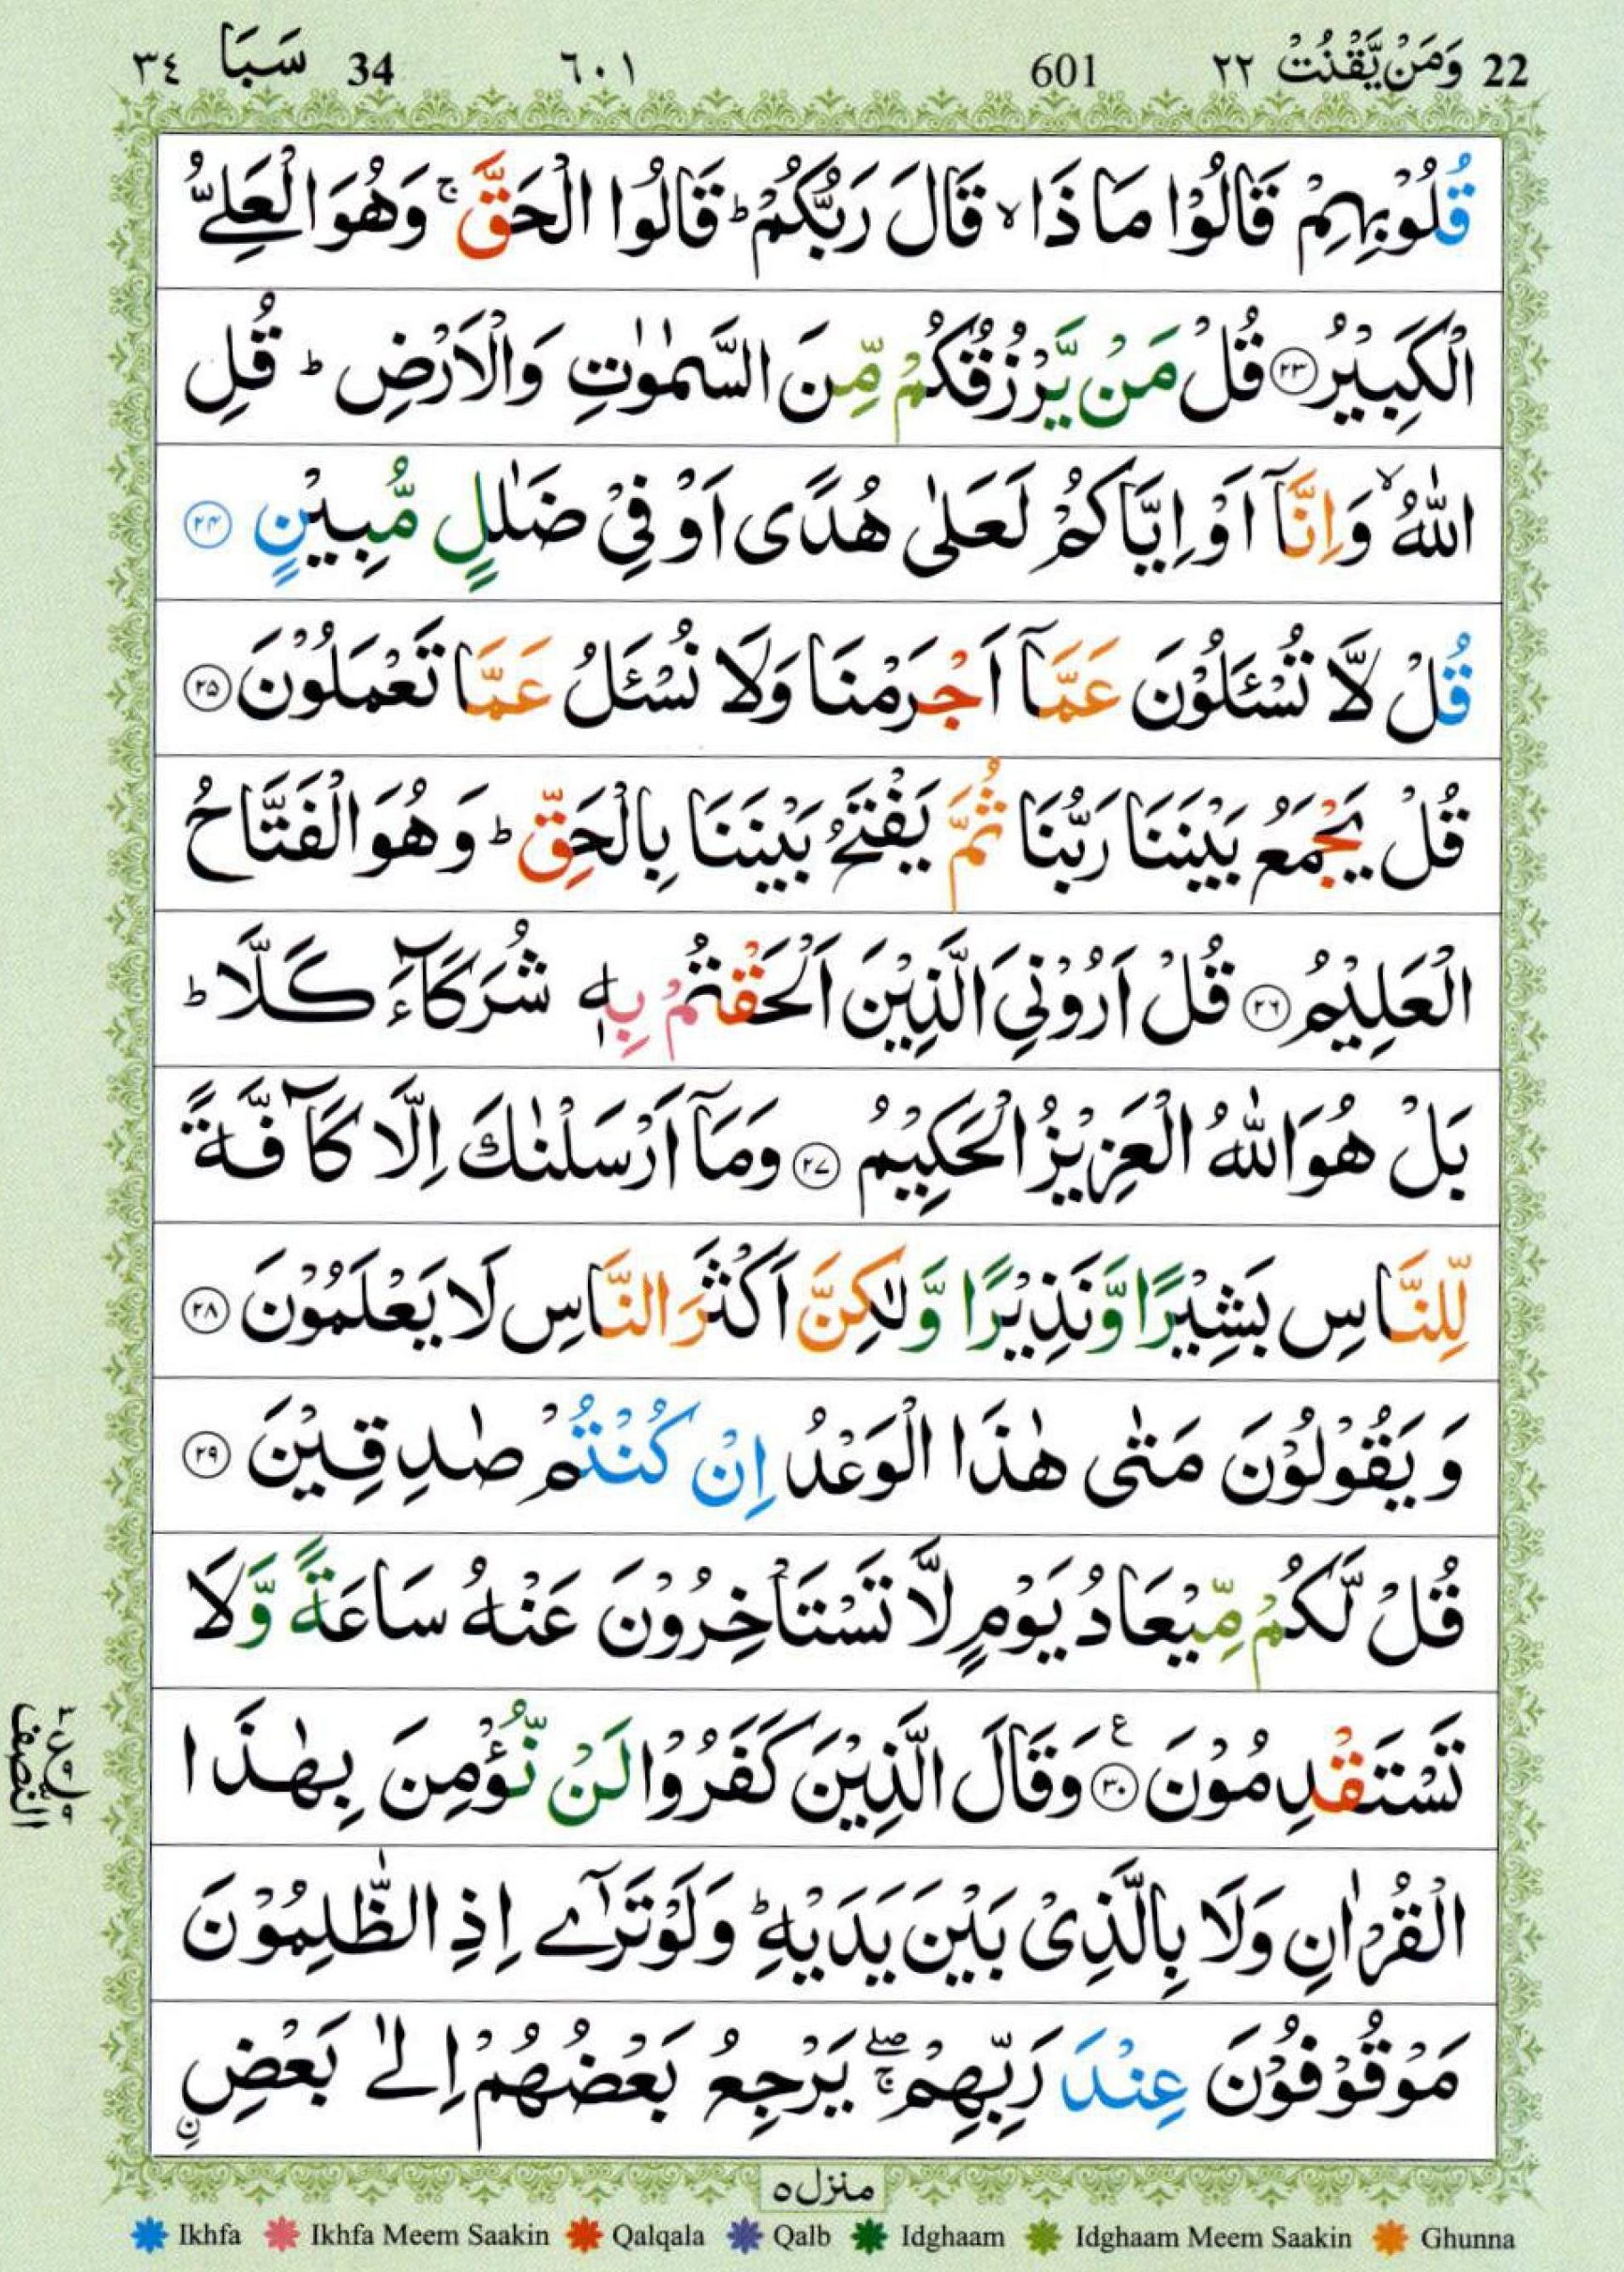 22 وَمَنْ يَّقْنُتْ ٢٢ 601 ٦٠١ 34 سَبَا ٣٤
قُلُوْبِهِمْ قَالُوْا مَا ذَا ۙ قَالَ رَبُّكُمْ ؕ قَالُوا الْحَقَّ ۚ وَهُوَ الْعَلِيُّ
الْكَبِيْرُ ﴿۲۳﴾ قُلْ مَنْ يَّرْزُقُكُمْ مِّنَ السَّمٰوٰتِ وَالْاَرْضِ ؕ قُلِ
اللّٰهُ ۙ وَاِنَّاۤ اَوْ اِيَّاكُمْ لَعَلٰى هُدًى اَوْ فِيْ ضَلٰلٍ مُّبِيْنٍ ﴿۲۴﴾
قُلْ لَّا تُسْـَٔلُوْنَ عَمَّاۤ اَجْرَمْنَا وَلَا نُسْـَٔلُ عَمَّا تَعْمَلُوْنَ ﴿۲۵﴾
قُلْ يَجْمَعُ بَيْنَنَا رَبُّنَا ثُمَّ يَفْتَحُ بَيْنَنَا بِالْحَقِّ ؕ وَهُوَ الْفَتَّاحُ
الْعَلِيْمُ ﴿۲۶﴾ قُلْ اَرُوْنِيَ الَّذِيْنَ اَلْحَقْتُمْ بِهٖ شُرَكَآءَ كَلَّا ؕ
بَلْ هُوَ اللّٰهُ الْعَزِيْزُ الْحَكِيْمُ ﴿۲۷﴾ وَمَاۤ اَرْسَلْنٰكَ اِلَّا كَآفَّةً
لِّلنَّاسِ بَشِيْرًا وَّنَذِيْرًا وَّلٰكِنَّ اَكْثَرَ النَّاسِ لَا يَعْلَمُوْنَ ﴿۲۸﴾
وَ يَقُوْلُوْنَ مَتٰى هٰذَا الْوَعْدُ اِنْ كُنْتُمْ صٰدِقِيْنَ ﴿۲۹﴾
قُلْ لَّكُمْ مِّيْعَادُ يَوْمٍ لَّا تَسْتَاْخِرُوْنَ عَنْهُ سَاعَةً وَّلَا
تَسْتَقْدِمُوْنَ ﴿۳۰﴾ ع وَقَالَ الَّذِيْنَ كَفَرُوْا لَنْ نُّؤْمِنَ بِهٰذَا
الْقُرْاٰنِ وَلَا بِالَّذِيْ بَيْنَ يَدَيْهِ ؕ وَلَوْ تَرٰۤى اِذِ الظّٰلِمُوْنَ
مَوْقُوْفُوْنَ عِنْدَ رَبِّهِمْ ۖۚ يَرْجِعُ بَعْضُهُمْ اِلٰى بَعْضِ ۨ
النصف
منزل ٥
Ikhfa Ikhfa Meem Saakin Qalqala Qalb Idghaam Idghaam Meem Saakin Ghunna